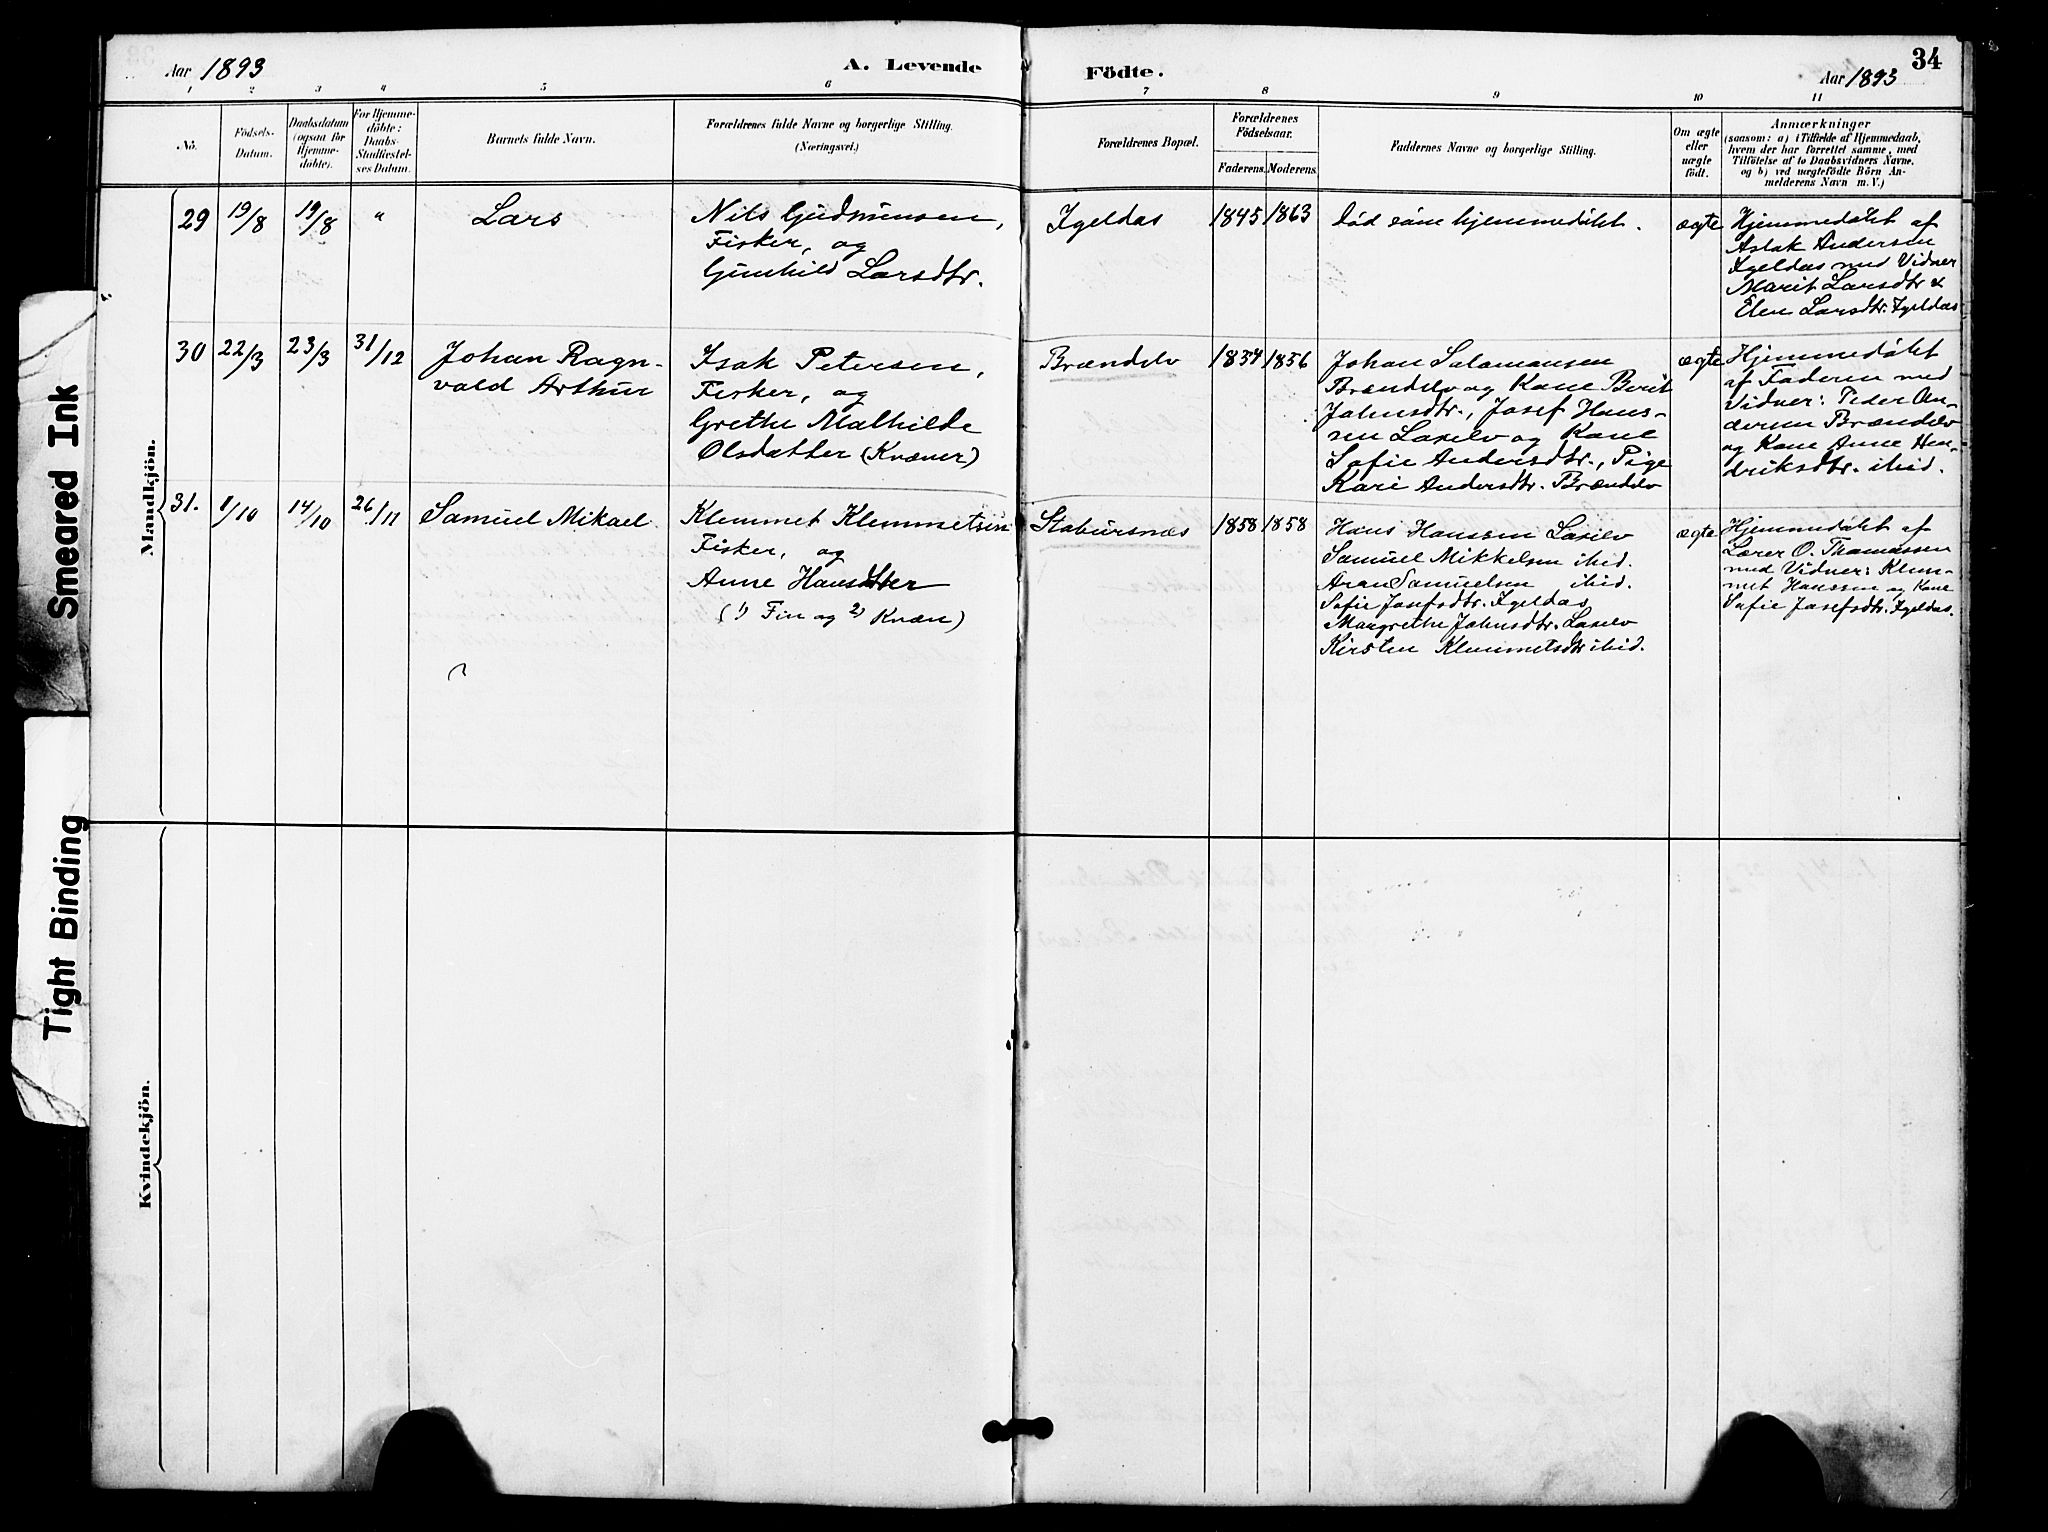 Aar 1893
A. Levende
Födte.
Aar 1893
34
1 2 3 4 5 6 7 8 9 10 11
No.
Födsels-
Datum.
Daabsdatum
(ogsaa for
Hjemme-
döbte).
For Hjemme-
döbte:
Daabs-
Stadfæstel-
ses Datum.
Barnets fulde Navn.
Forældrenes fulde Navne og borgerlige Stilling.
(Næringsvei.)
Forældrenes Bopæl.
Forældrenes
Födselsaar.
Faderens. Moderens.
Faddernes Navne og borgerlige Stilling.
Om ægte
eller
uægte
födt.
Anmærkninger
(saasom: a) i Tilfælde af Hjemmedaab,
hvem der har forrettet samme, med
Tilföielse af to Daabsvidners Navne,
og b) ved uægtefödte Börn An-
melderens Navn m. V.)
Mandkjön.
29 19/8 19/8 " Lars
Nils Gudmunsen,
Fisker, og
Gunhild Larsdtr.
Igeldas 1845 1863
død som hjemmedøbt. ægte
Hjemmedøbt af
Aslak Andersen
Igeldas med Vidner
Marit Larsdtr &
Elen Larsdtr. Igeldas
30 22/3 23/3 31/12 Johan Ragn-
vald Arthur
Isak Petersen,
Fisker, og
Grethe Mathilde
Olsdatter (Kvæner)
Brændelv 1854 1856
Johan Salamansen
Brændelv og Kone Berit
Johnsdtr., Josef Hans-
sen Laxelv og Kone
Sofie Andersdtr., Pige
Kari Andersdtr. Brændelv
ægte
Hjemmedøbt
af Faderen med
Vidner: Peder An-
dersen Brændelv
og Kone Anne Hen-
driksdtr. ibid.
31. 1/10 14/10 26/11 Samuel Mikael
Klemmet Klemmetsen
Fisker, og
Anne Hansdtter
(1) Fin og 2) Kvæn)
Stabursnæs 1858 1858
Hans Hanssen Laxelv
Samuel Mikkelsen ibid.
Aran Samuelsen ibid.
Sofie Josefsdtr. Igeldas
Margrethe Johnsdtr. Laxelv
Kirsten Klemmetsdtr ibid.
ægte
Hjemmedøbt af
Lærer O. Thomassen
med Vidner: Klem-
met Hanssen og Kone
Sofie Josefsdtr. Igeldas.
Kvindekjön.
Smeared Ink
Tight Binding